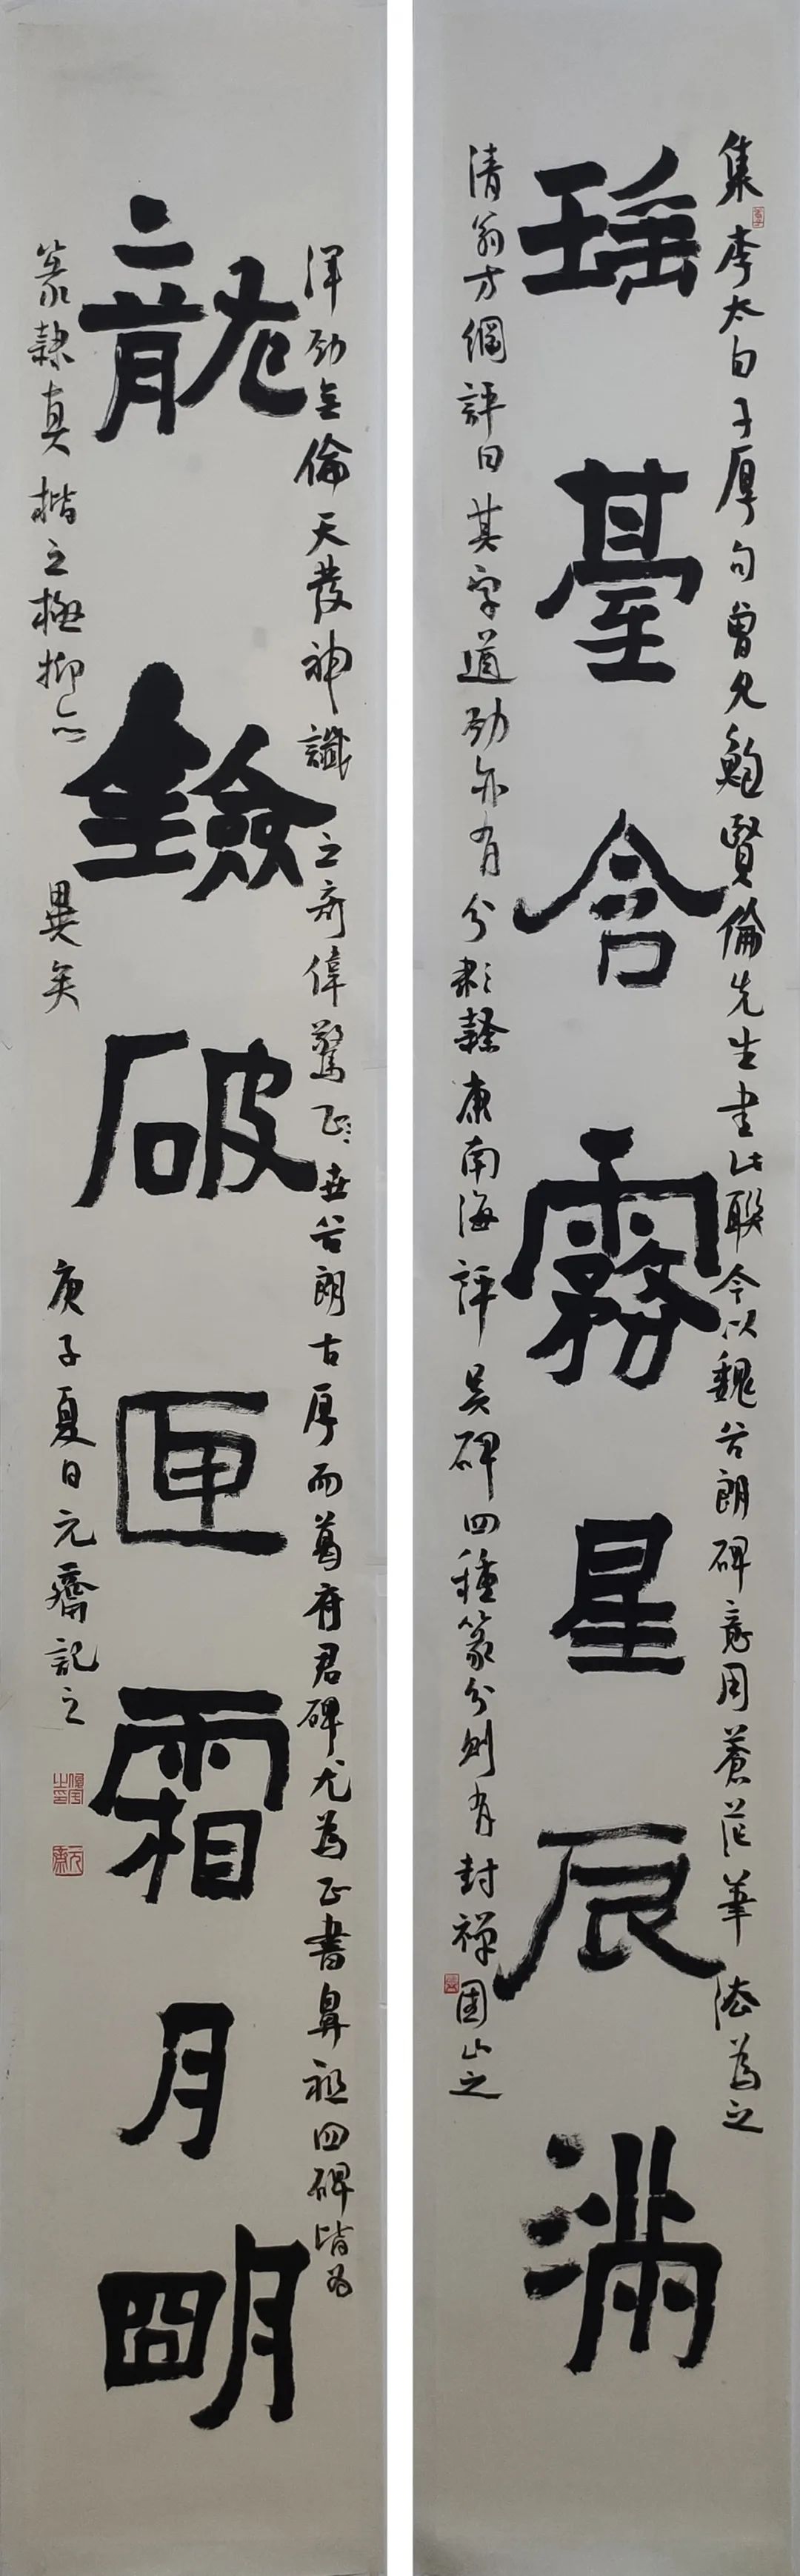 集李太白子厚句曾見鮑賢倫先生書此聯今以魏谷朗碑意用蒼茫筆法為之
瑤臺含霧星辰滿
清翁方綱評曰其字遒勁亦有分隸
康南海評吳碑四種篆分則有封禪國山之
渾勁無倫天發神讖之奇偉驚世谷朗古厚而葛府君碑尤為正書鼻祖四碑皆為
龍劍破匣霜月明
篆隸真楷之極抑亦異矣
庚子夏日元齋記之